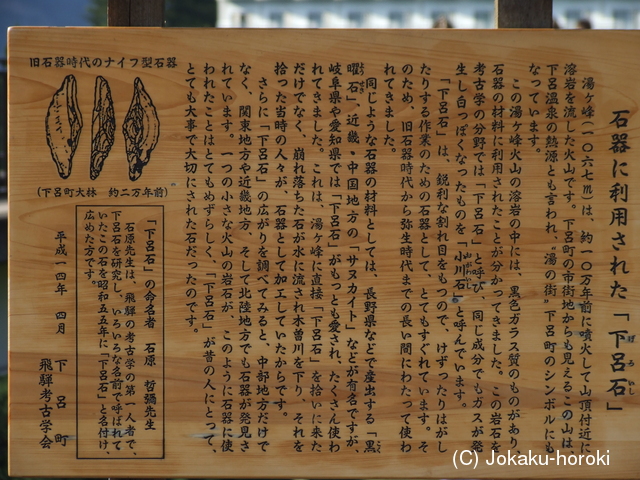 石器に利用された「下呂石」
げろ
いし
湯ヶ峰(一〇六七m)は、約一〇万年前に噴火して山頂付近に
溶岩を流した火山です。下呂町の市街地からも見えるこの山は
下呂温泉の熱源とも言われ、"湯の街"下呂町のシンボルにも
なっています。
この湯ヶ峰火山の溶岩の中には、黒色ガラス質のものがあり
石器の材料に利用されたことが分かってきました。この岩石を
考古学の分野では「下呂石」と呼び、同じ成分でもガスが発
生し白っぽくなったものを「小川石」と呼んでいます。
「下呂石」は、鋭利な割れ目をもつので、けずったりはがし
たりする作業のための石器として、とてもすぐれています。そ
のため、旧石器時代から弥生時代までの長い間にわたって使わ
れてきました。
同じような石器の材料としては、長野県などで産出する「黒
曜石」、近畿・中国地方の「サヌカイト」などが有名ですが、
岐阜県や愛知県では「下呂石」がもっとも愛され、たくさん使わ
れてきました。これは、湯ヶ峰に直接「下呂石」を拾いに来た
だけでなく、崩れ落ちた石が水に流され木曽川を下り、それを
拾った当時の人々が、石器として加工していたからです。
さらに「下呂石」の広がりを調べてみると、中部地方だけで
なく、関東地方や近畿地方、そして北陸地方でも石器が発見さ
れています。一つの小さな火山の岩石が、このように石器に使
われたことはとてもめずらしく、「下呂石」が昔の人にとって、
とても大事で大切にされた石だったのです。
旧石器時代のナイフ型石器
(下呂町大林 約二万年前)
「下呂石」の命名者 石原 哲彌先生
石原先生は、飛騨の考古学の第一人者で、
下呂石を研究し、いろいろな名前で呼ばれて
いたこの石を昭和五五年に「下呂石」と名付け、
広めた方です。
平成一四年 四月
下呂町
飛騨考古学会
(C) Jokaku-horoki